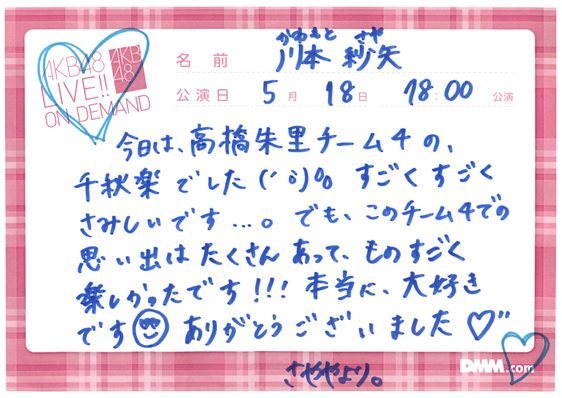 AKB48
LIVE!!
ON DEMAND
AKB
48
かわもと さや
名前 川本 紗矢
公演日 5月 18日 18:00 公演
今日は、高橋朱里チーム4の、
千秋楽でした(´ö)0。 すごくすごく
さみしいです...。でも、このチーム4での
思い出はたくさんあって、ものすごく
楽しかったです!!! 本当に、大好き
です ありがとうございました♡"
さややより。
DMM.com